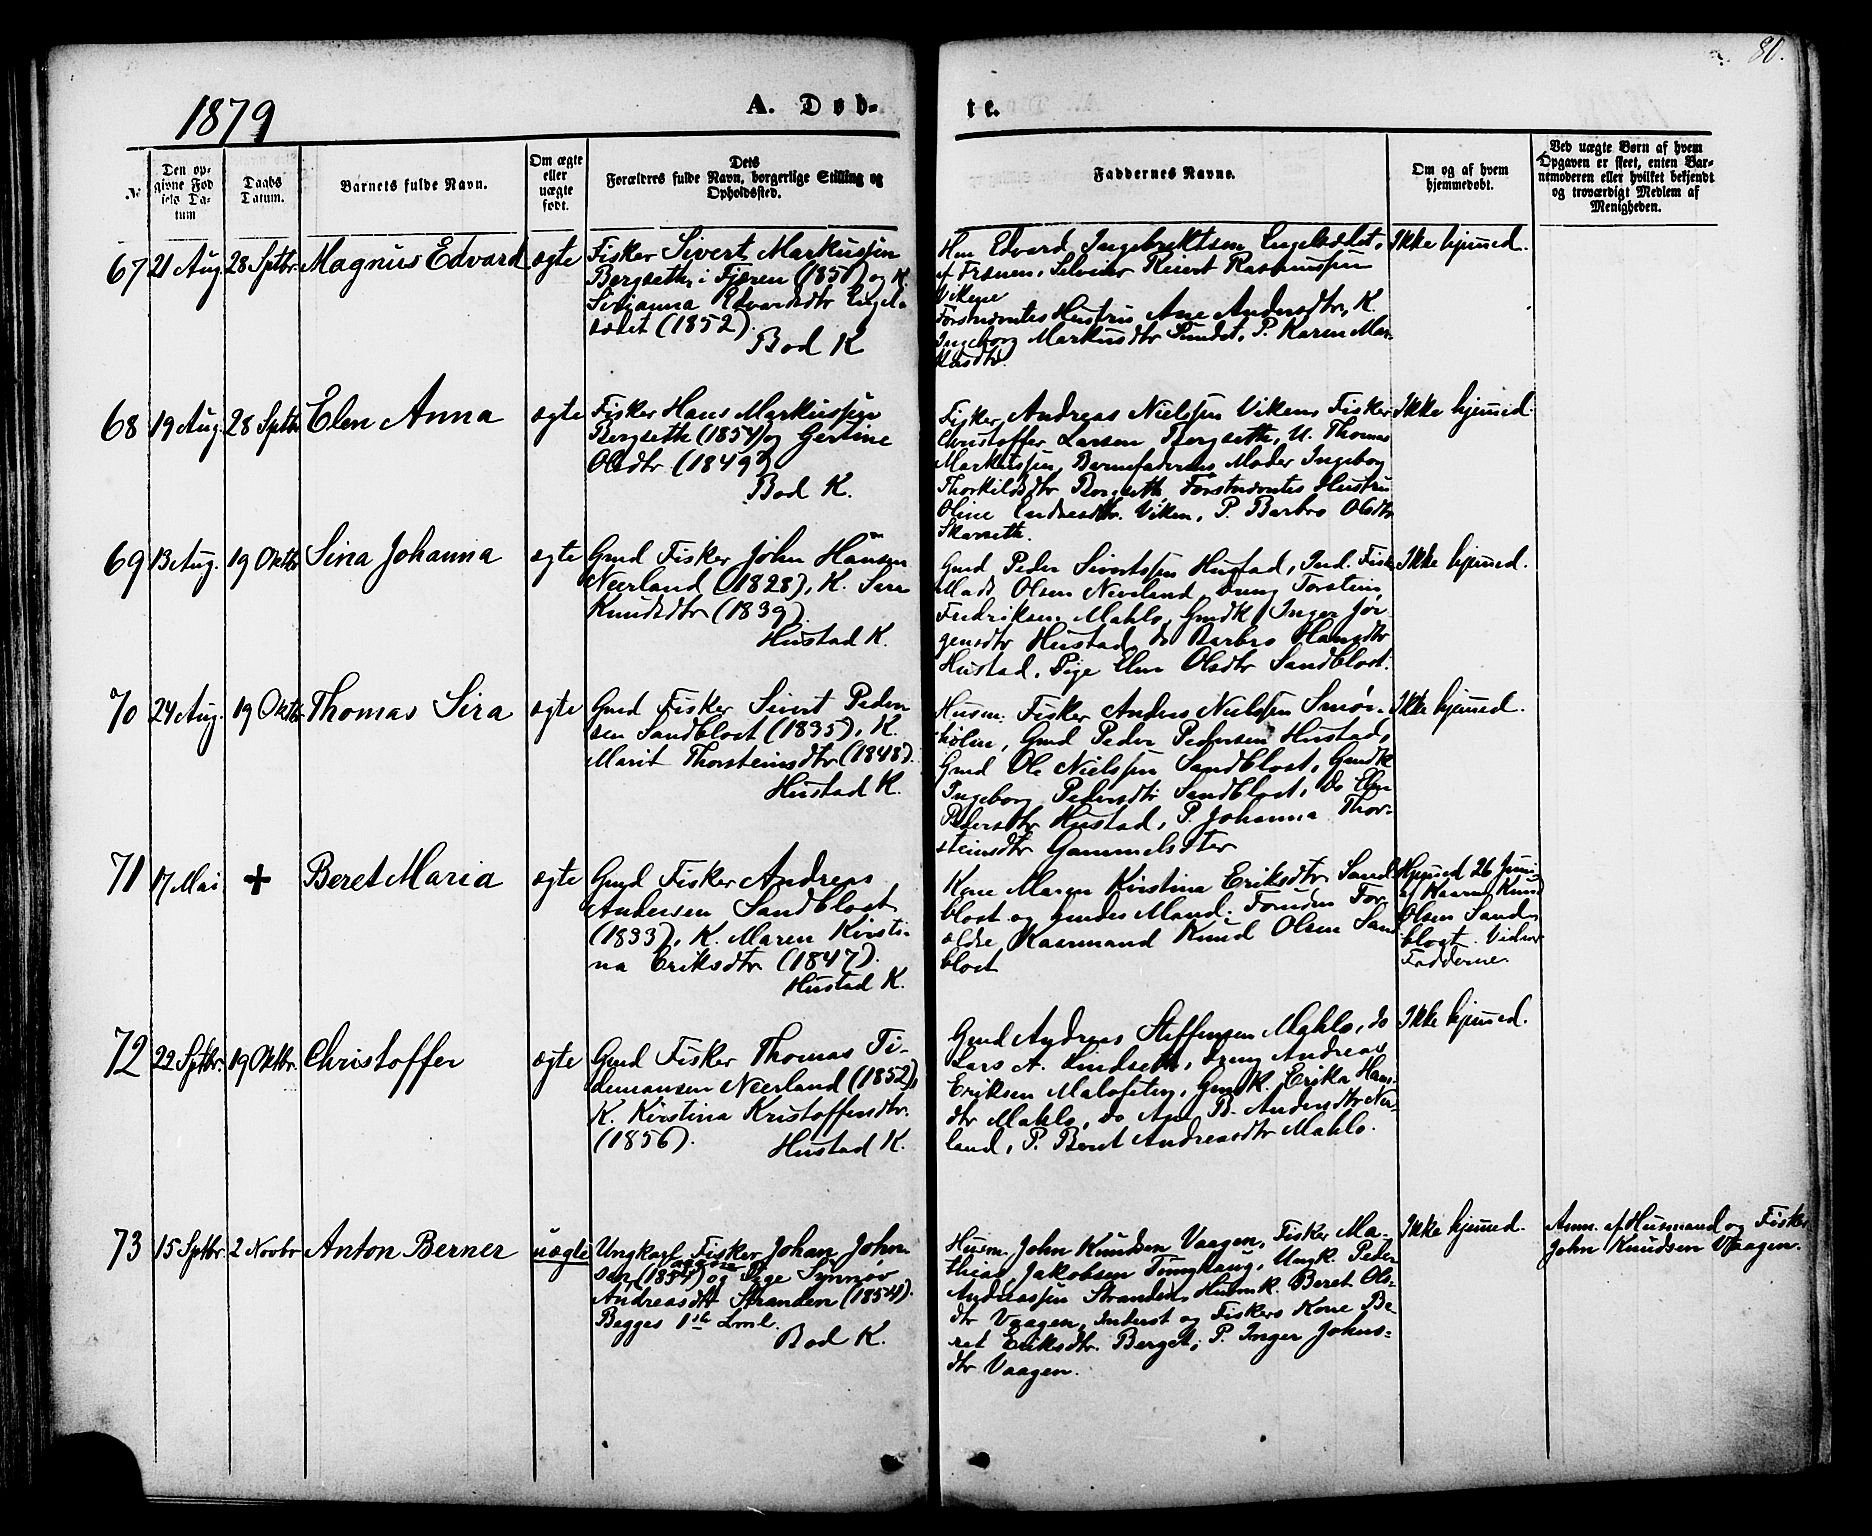 80.
1879
A. Døb-
te.
No
Den op-
givne Fød
sels Da-
tum
Daabs
Datum.
Barnets fulde Navn.
Om ægte
eller
uægte
født.
Dets
Forældres fulde Navn, borgerlige Stilling og
Opholdssted.
Faddernes Navne.
Om og af hvem
hjemmedøbt.
Ved uægte Børn af hvem
Opgaven er skeet, enten Bar-
nemoderen eller hvilket bekjendt
og troværdigt Medlem af
Menigheden.
67 21 Aug. 28 Sptbr. Magnus Edvard ægte
Fisker Sivert Markussen
Bergseth, i Fjæren (1851) og K.
Edvardsdtr Engel-
sælet (1852).
Bod K
Hm Edvard Ingebriktsen Engelsælet,
Reiert Rasmussen
Vikene
Førstnævntes Hustru Ane Andersdtr, K.
Ingeborg Markusdtr Sundet, P. Karen Mar-
kusdtr
Ikke hjemmed.
68 19 Aug. 28 Sptbr Elen Anna ægte
Fisker Hans Markussen
Bergseth (1854) og Gertine
Olsdtr (1849)
Bod K.
Fisker Andreas Nielssen Viken, Fisker
Christoffer Larsen Bergseth, U. Thomas
Markussen, Barnefaderens Moder Ingeborg
Thorkildsdtr Bergseth, Førstnævntes Hustru
Oline Endresdtr. Viken, P. Barbro Olsdtr
Skarseth.
Ikke hjemmed.
69 13 Aug. 19 Oktbr Sina Johanna ægte
Gmd Fisker John Hansen
Neerland (1828), K. Sira
Knudsdtr (1839)
Hustad K.
Gmd Peder Sivertssen Hustad, Ind. Fisk.
Mads Olsen Neerland, Dreng Torstein
Fredriksen Mahlo, Gmdk. Inger Jør-
gensdtr Hustad, do Barbro Hansdtr
Hustad, Pige Elen Olsdtr Sandblost.
Ikke hjemmed.
70 24 Aug. 19 Oktbr Thomas Sira ægte
Gmd Fisker Sivert Peder-
sen Sandblost (1835), K.
Marit Thorsteinsdtr (1848).
Hustad K.
Husm. Fisker Anders Nielssen Smør-
holm, Gmd Peder Pedersen Hustad,
Gmd Ole Nielssen Sandblost, Gmdk
Ingeborg Pedersdtr Sandblost, do Elen
Pedersdtr Hustad, P. Johanna Thor-
steinsdtr Gammelsæter
Ikke hjemmed.
71 17 Mai + Beret Maria ægte
Gmd Fisker Andreas
Andersen Sandblost
(1833), K. Maren Kirsti-
na Eriksdtr (1847).
Hustad K.
Kone Maren Kirstina Eriksdtr. Sand-
blost og hendes Mand: Foruden For-
ældre Kaarmand Knud Olsen Sand
blost
Hjemmed 26 Juni
af Kaarm. Knud
Olsen Sand-
blost. Vidner
Fadderne.
72 22 Sptbr. 19 Oktbr. Christoffer ægte
Gmd Fisker Thomas Ti-
demansen Neerland (1852),
K. Kirstina Kristoffersdtr.
(1856).
Hustad K.
Gmd Andreas Steffensen Mahlo, do
Lars A. Lindseth, Dreng Andreas
Eriksen Malefeten, Gmdk. Erika Hans-
dtr Mahlo, do Ane B. Andersdtr Neer-
land, P. Beret Andreasdtr Mahlo.
Ikke hjemmed.
73 15 Sptbr. 2 Novbr Anton Berner uægte
Ungkarl Fisker Johan John-
sen (1854) og Pige Synnøv
Andreasdtr Stranden (1854).
Begges 1ste Lml.
Bod K.
Husm. John Knudsen Vaagen, Fisker Ma-
thias Jakobsen Tunghaug, Ungk. Peder
Andreassen Stranden, Husmk. Beret Ols-
dtr Vaagen, Inderst og Fiskers Kone Be-
ret Eriksdtr. Berget, P. Inger Johns-
dtr Vaagen.
Ikke hjemmed.
Anm. af Husmand og Fisker
John Knudsen Vaagen.